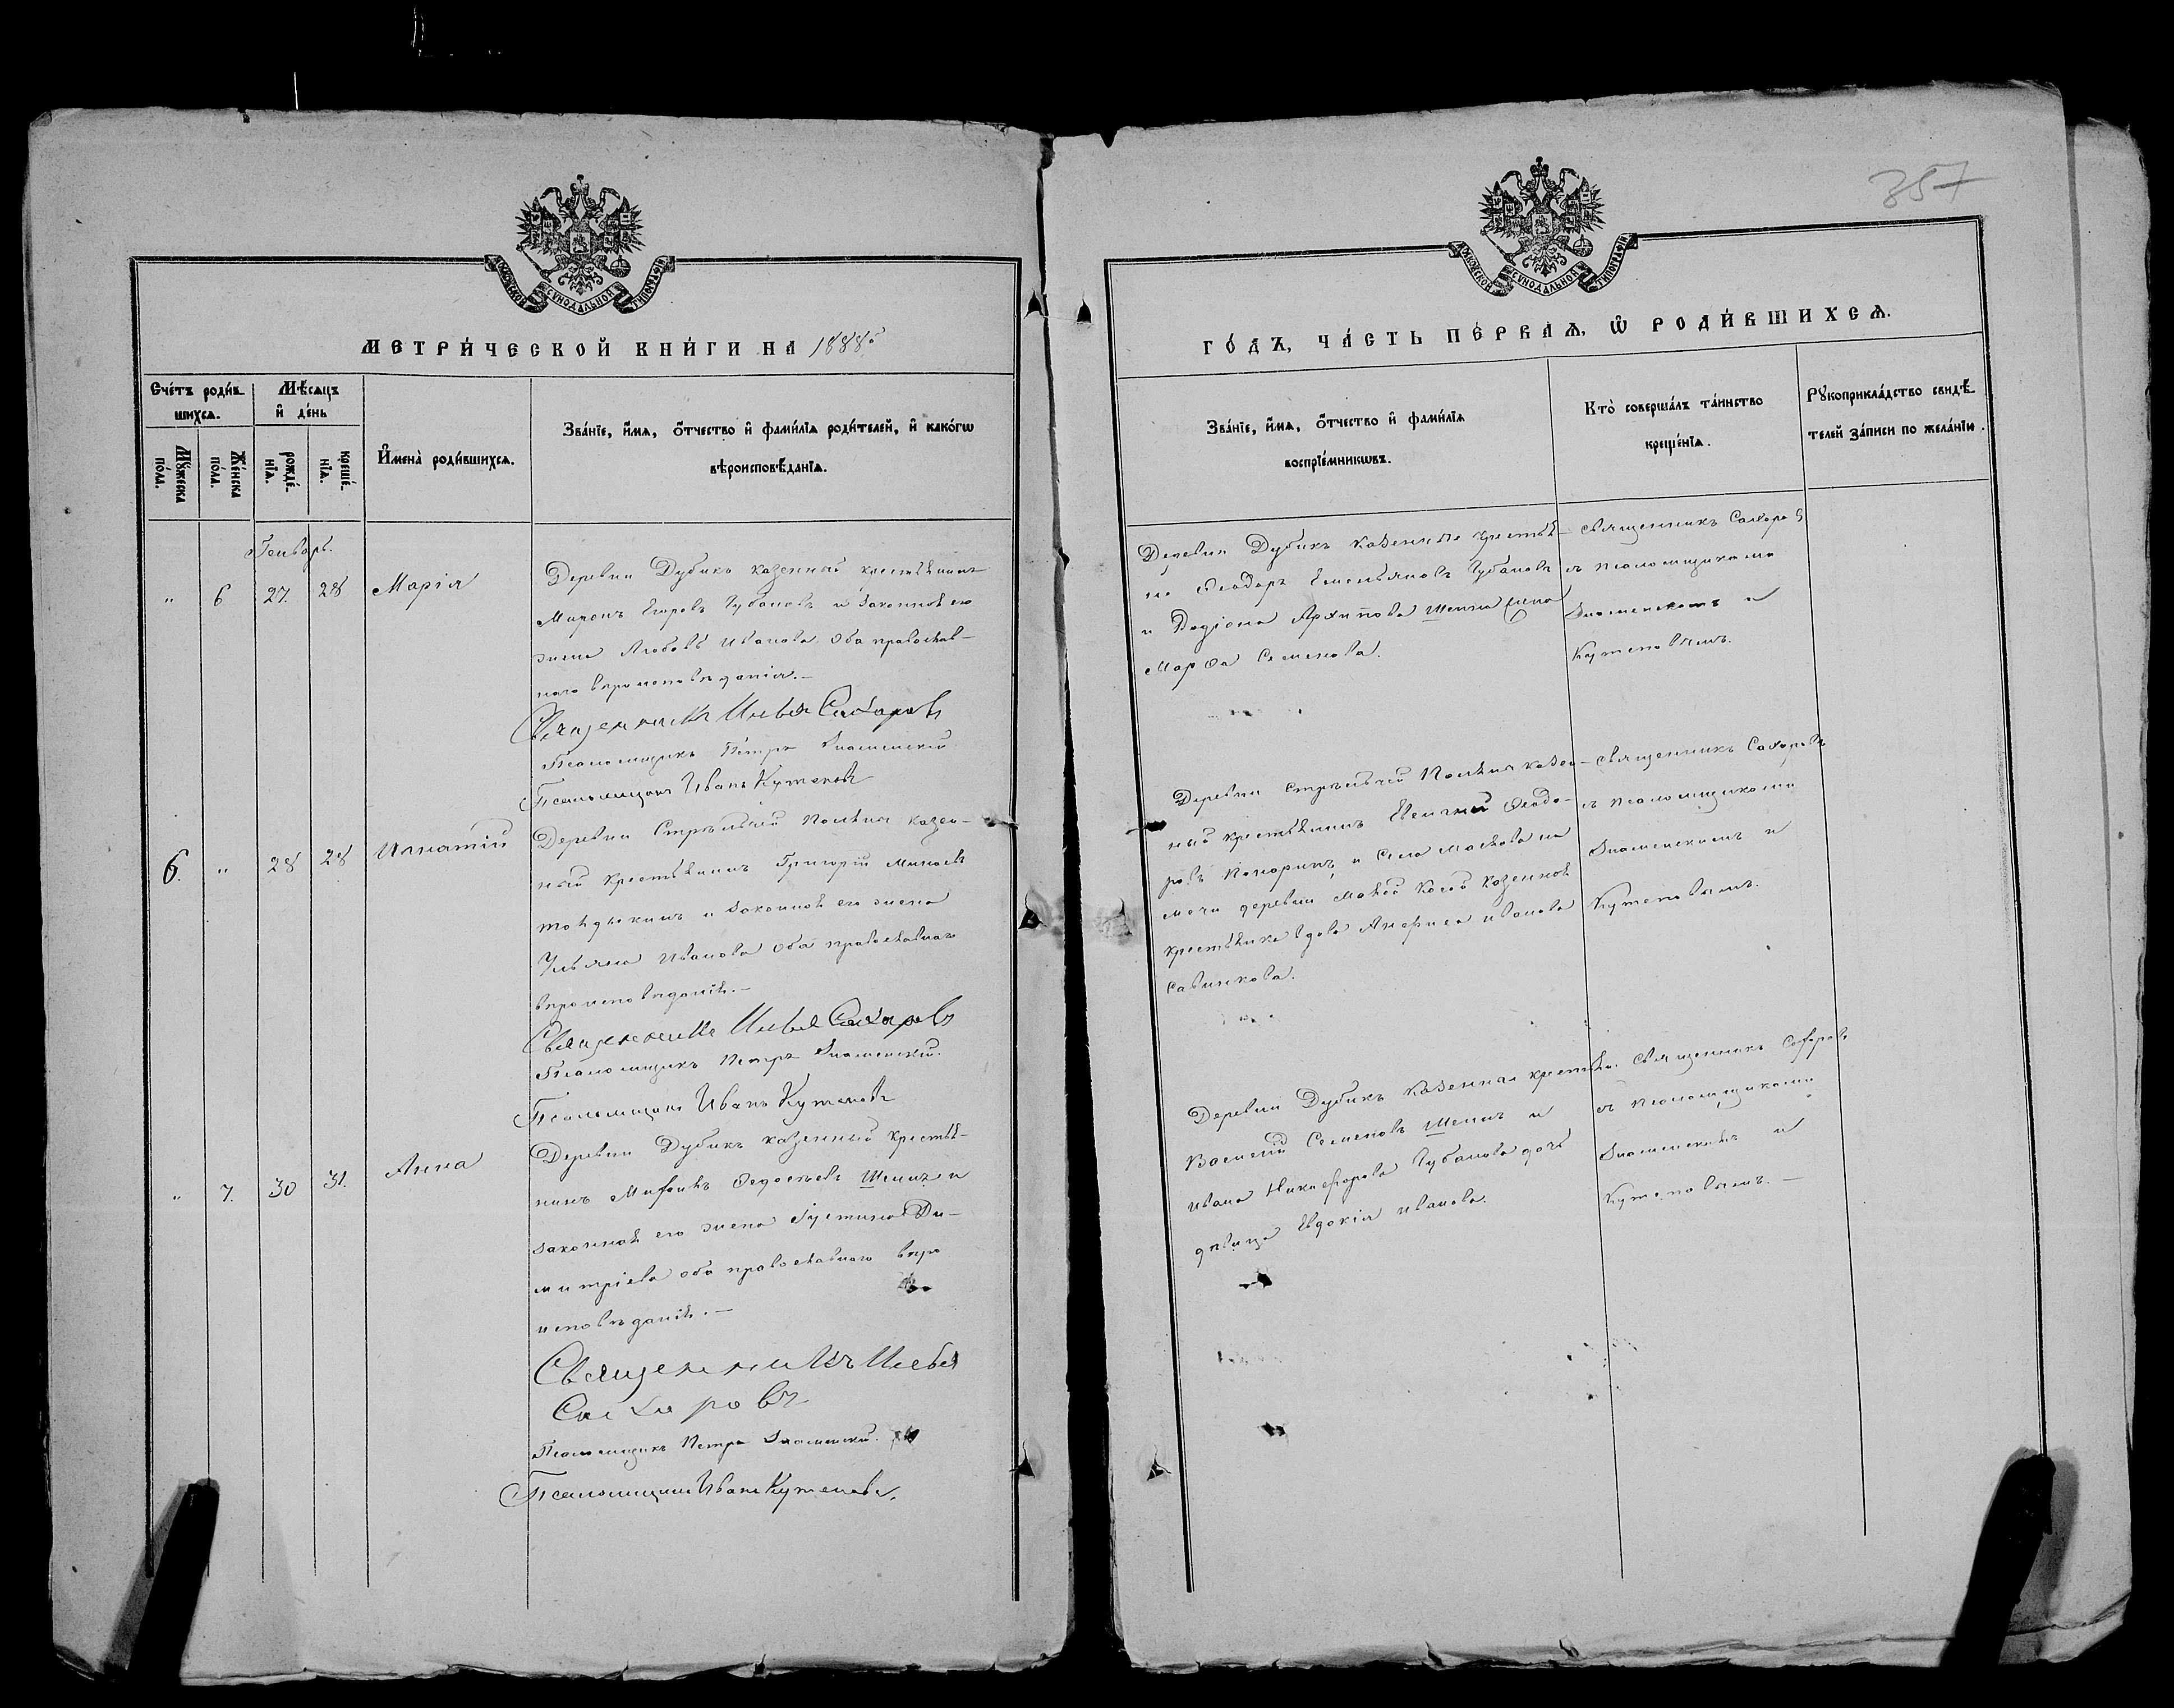 МОСКОВСКОЙ СѴНОДАЛЬНОЙ ТИПОГРАФІИ
МЕТРИ́ЧЕСКОЙ КНИ́ГИ НА 1888
Сче́тъ роди́в-
шихся.
Мꙋ́жеска
по́ла.
Же́нска
по́ла.
Мѣ́сяцъ
и҆ де́нь
рожде́-
нїя.
креще́-
нїя.
И҆мена̀ роди́вшихся.
Зва́нїе, и҆́мя, ѻ҆́тчество и҆ фами́лїя роди́телей, и҆ како́гѡ
вѣроисповѣ́данїя.
Генварь.
" 6 27. 28 Марія
Деревни Дубикъ казенный крестьянинъ
Миронъ Егоровъ Губановъ и законная его
жена Любовь Иванова оба православ-
наго вероисповеданія.—
Священникъ Илья Сахаровъ
Псаломщикъ Петръ Знаменскій
Псаломщикъ Иванъ Кутеповъ
6. " 28 28 Игнатій
Деревни Стрѣльчей Поляны казен-
ный крестьянинъ Григорій Минаевъ
и законная его жена
Ульяна Иванова оба православнаго
вероисповеданія.—
Священникъ Илья Сахаровъ
Псаломщикъ Петръ Знаменскій.
Псаломщикъ Иванъ Кутеповъ
" 7. 30 31. Анна
Деревни Дубикъ казенный крестья-
нинъ Ѳедосѣевъ Шеинъ и
законная его жена Іустина Ди-
митріева оба православнаго веро
исповѣданія.—
Священникъ Илья
Сахаровъ
Псаломщикъ Петръ Знаменскій.
Псаломщикъ Иванъ Кутеповъ.
357
МОСКОВСКОЙ СѴНОДАЛЬНОЙ ТИПОГРАФІИ
ГО́ДЪ, ЧА́СТЬ ПЕ́РВАЯ, Ѽ РОДИ́ВШИХСЯ.
Зва́нїе, и҆́мя, ѻ҆́тчество и҆ фами́лїя
воспрїе́мникѡвъ.
Кто̀ соверша́лъ та́инство
креще́нїя.
Рꙋкоприкла́дство свидѣ́-
телей за́писи по жела́нїю.
Деревни Дубикъ казенные крестья-
не Ѳеодоръ Емельяновъ Губановъ
и Родіона Архипова Шеина жена
Марѳа Семенова.
Священникъ Сахаровъ
съ псаломщиками
Знаменскимъ и
Кутеповымъ.
Деревни Стрѣльчей Поляны казен-
ный крестьянинъ Евгеній Ѳеодо-
ровъ и села
мечи деревни казенная
крестьянка вдова Анфиса Иванова
Савинкова.
Священникъ Сахаровъ
съ псаломщиками
Знаменскимъ и
Кутеповымъ.
Деревни Дубикъ казенная крестьян.
Василій Семеновъ Шеинъ и
Ивана Никифорова Губанова дочь
дѣвица Евдокія Иванова.
Священникъ Сахаровъ
съ псаломщиками
Знаменскимъ и
Кутеповымъ.—